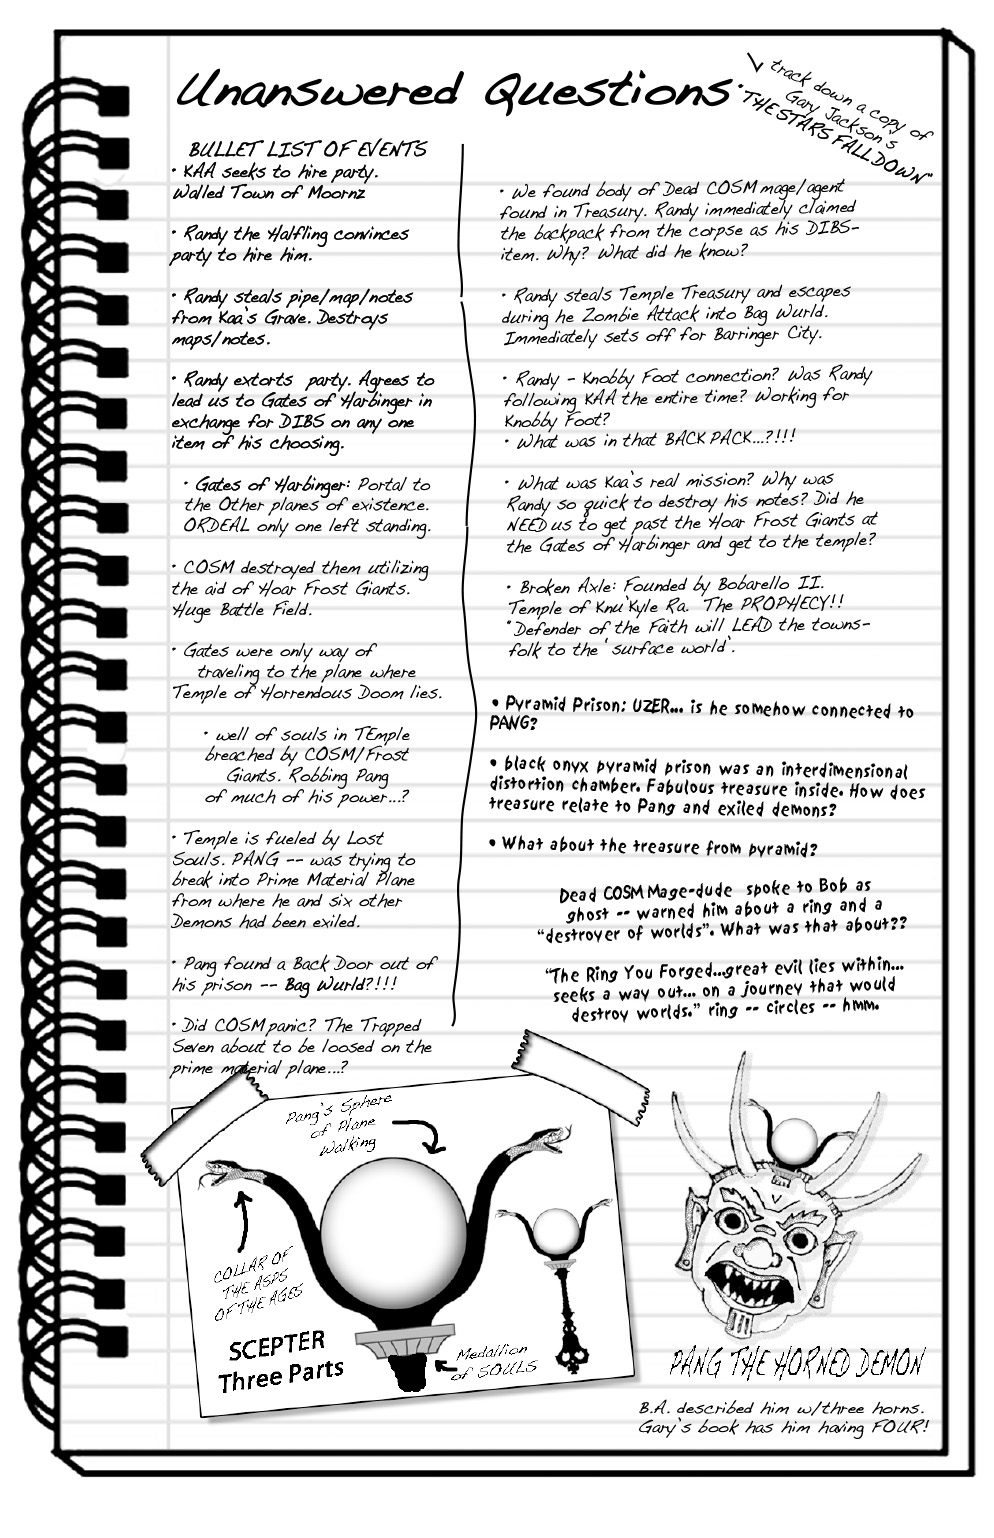 Unanswered Questions
track down a copy of
Gary Jackson's
"THE STARS FALL DOWN"
BULLET LIST OF EVENTS
· KAA seeks to hire party.
Walled Town of Moornz
· Randy the Halfling convinces
party to hire him.
· Randy steals pipe/map/notes
from Kaa's Grave. Destroys
maps/notes.
· Randy extorts party. Agrees to
lead us to Gates of Harbinger in
exchange for DIBS on any one
item of his choosing.
· Gates of Harbinger: Portal to
the Other planes of existence.
ORDEAL only one left standing.
· COSM destroyed them utilizing
the aid of Hoar Frost Giants.
Huge Battle Field.
· Gates were only way of
traveling to the plane where
Temple of Horrendous Doom lies.
· well of souls in TEmple
breached by COSM/Frost
Giants. Robbing Pang
of much of his power...?
· Temple is fueled by Lost
Souls. PANG -- was trying to
break into Prime Material Plane
from where he and six other
Demons had been exiled.
· Pang found a Back Door out of
his prison -- Bag Wurld?!!!
· Did COSM panic? The Trapped
Seven about to be loosed on the
prime material plane...?
· We found body of Dead COSM mage/agent
found in Treasury. Randy immediately claimed
the backpack from the corpse as his DIBS-
item. Why? What did he know?
· Randy steals Temple Treasury and escapes
during he Zombie Attack into Bag Wurld.
Immediately sets off for Barringer City.
· Randy - Knobby Foot connection? Was Randy
following KAA the entire time? Working for
Knobby Foot?
· What was in that BACK PACK...?!!!
· What was Kaa's real mission? Why was
Randy so quick to destroy his notes? Did he
NEED us to get past the Hoar Frost Giants at
the Gates of Harbinger and get to the temple?
· Broken Axle: Founded by Bobarello II.
Temple of Knu'Kyle Ra. The PROPHECY!!
"Defender of the Faith will LEAD the towns-
folk to the 'surface world'.
• Pyramid Prison: UZER... is he somehow connected to
PANG?
• black onyx pyramid prison was an interdimensional
distortion chamber. Fabulous treasure inside. How does
treasure relate to Pang and exiled demons?
• What about the treasure from pyramid?
Dead COSM Mage-dude spoke to Bob as
ghost -- warned him about a ring and a
"destroyer of worlds". What was that about??
"The Ring You Forged...great evil lies within...
seeks a way out... on a journey that would
destroy worlds." ring -- circles -- hmm.
Pang's Sphere
of Plane
Walking
COLLAR OF
THE ASPS
OF THE AGES
SCEPTER
Three Parts
Medallion
of SOULS
PANG THE HORNED DEMON
B.A. described him w/three horns.
Gary's book has him having FOUR!